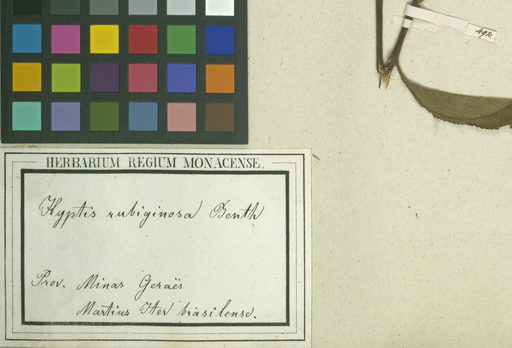 HERBARIUM REGIUM MONACENSE.
Hyptis rubiginosa Benth
Prov. Minas Geraës
Martius Iter brasilense.